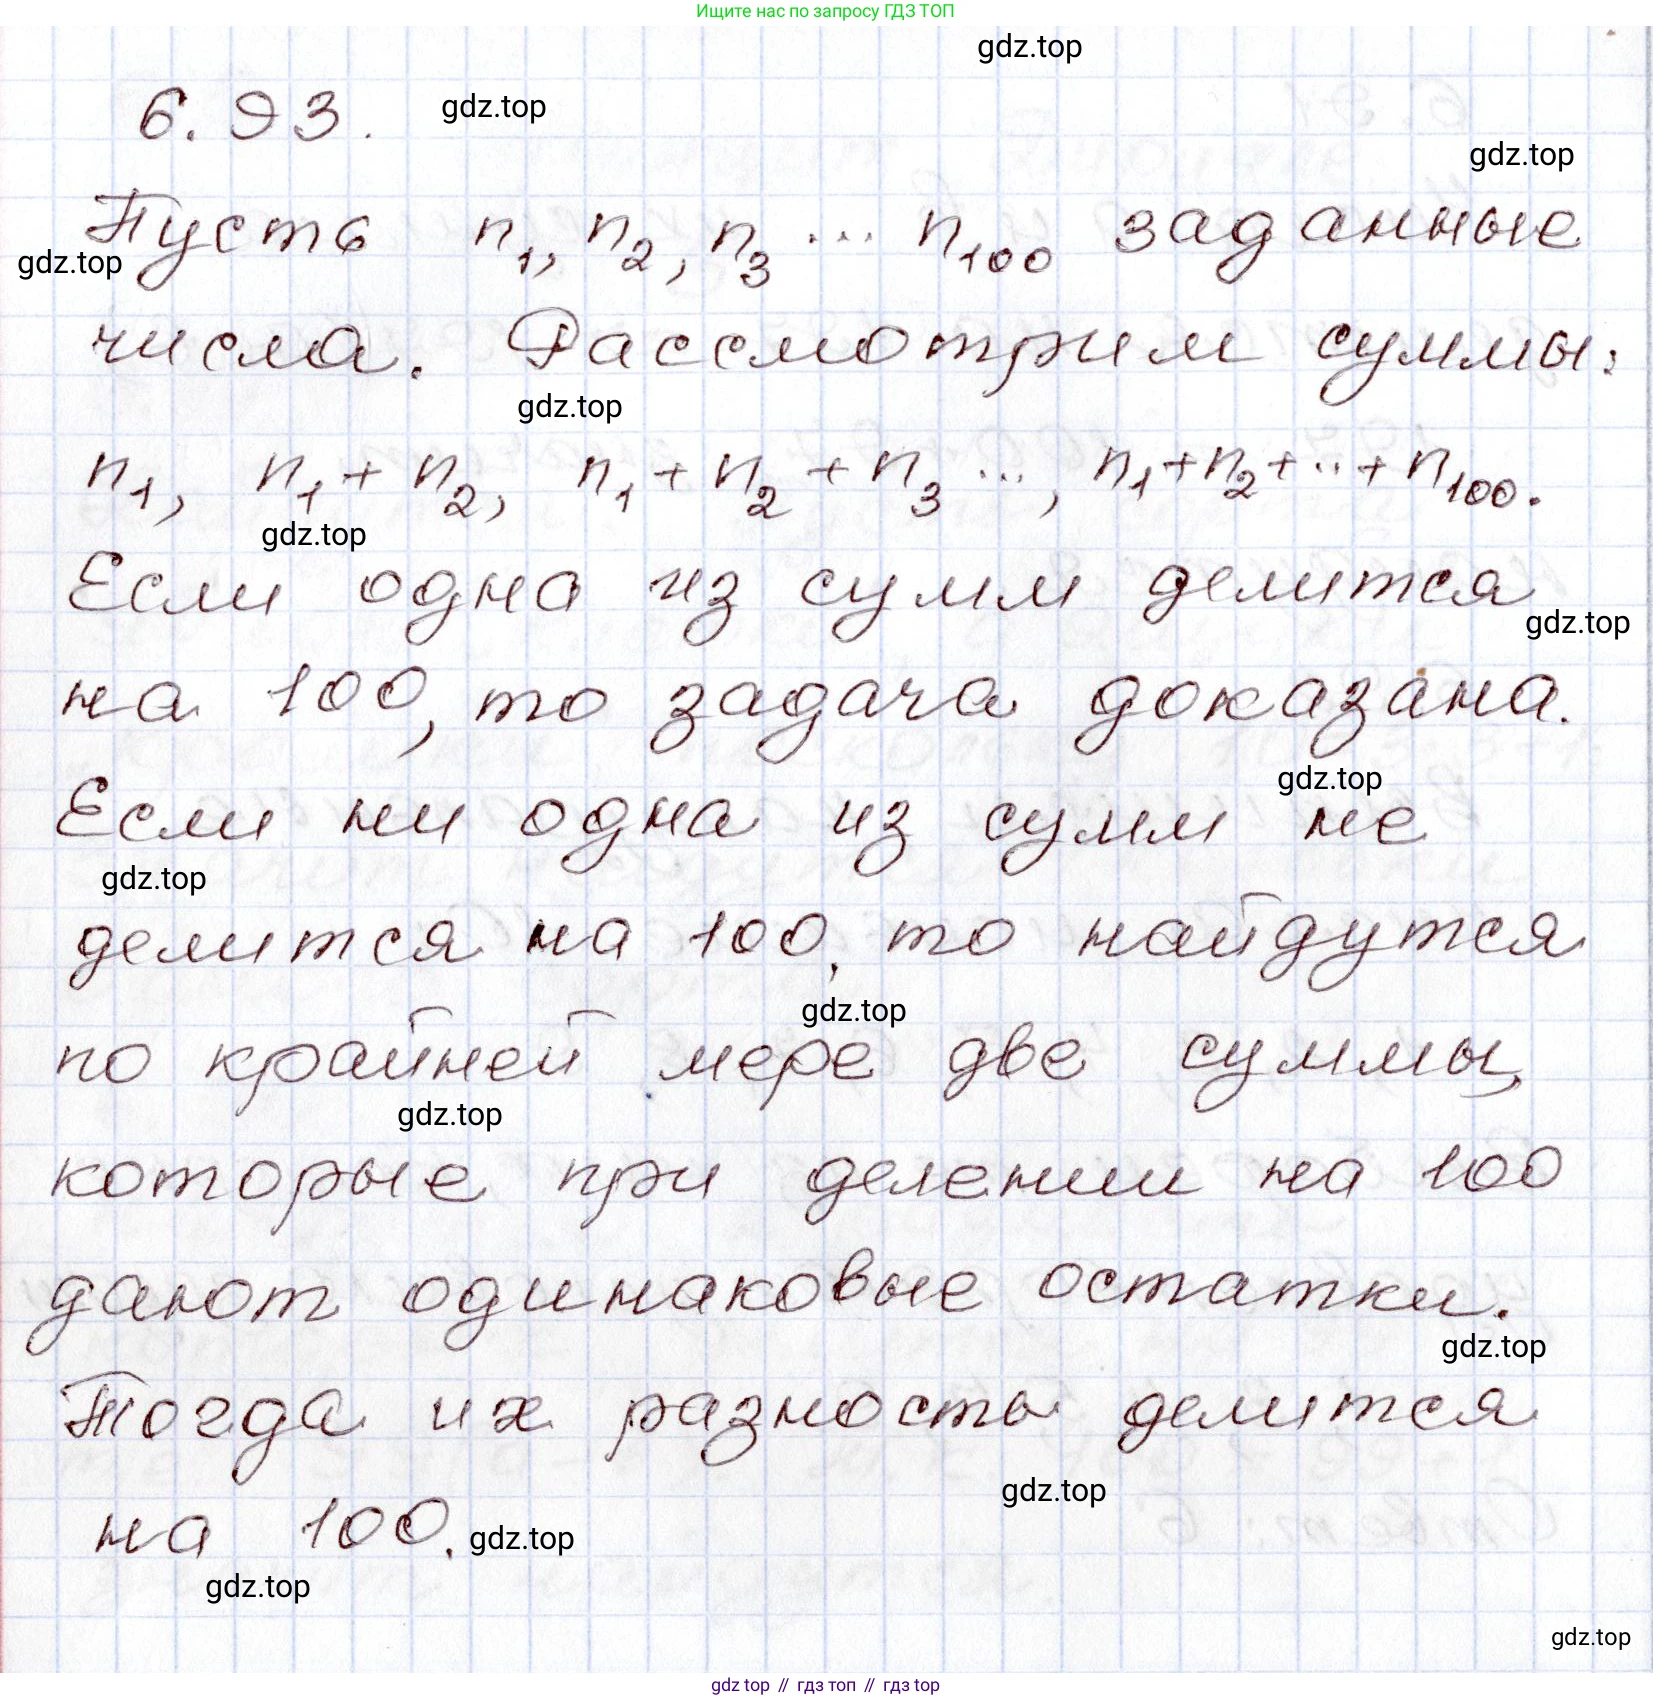 Ищите нас по запросу ГДЗ ТОП
gdz.top
6.93.
gdz.top
gdz.top
Пусть n₁, n₂, n₃ ... n₁₀₀ заданные
gdz.top
числа. Рассмотрим суммы:
gdz.top
n₁, n₁ + n₂, n₁ + n₂ + n₃ ..., n₁ + n₂ + ... + n₁₀₀.
gdz.top
Если одна из сумм делится
gdz.top
на 100, то задача доказана.
gdz.top
Если ни одна из сумм не
gdz.top
делится на 100, то найдутся
gdz.top
по крайней мере две суммы,
gdz.top
которые при делении на 100
дают одинаковые остатки.
gdz.top
Тогда их разность делится
gdz.top
на 100.
gdz.top
gdz.top
gdz.top
gdz top // гдз топ // гдз top